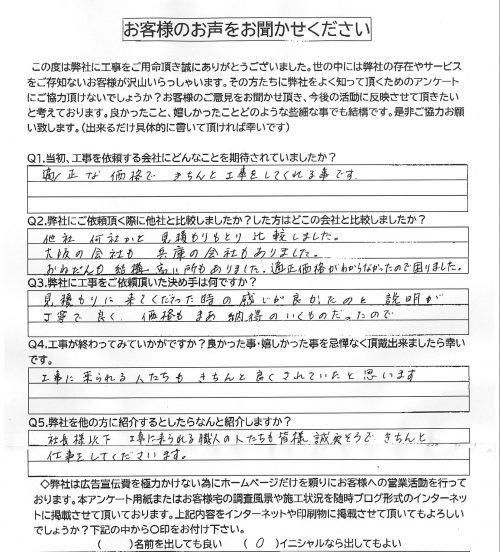 お客様のお声をお聞かせください
この度は弊社に工事をご用命頂き誠にありがとうございました。世の中には弊社の存在やサービス
をご存知ないお客様が沢山いらっしゃいます。その方たちに弊社をよく知って頂くためのアンケート
にご協力頂けないでしょうか？お客様のご意見をお聞かせ頂き、今後の活動に反映させて頂きたい
と考えております。良かったこと、嬉しかったことどのような些細な事でも結構です。是非ご協力お願
い致します。(出来るだけ具体的に書いて頂ければ幸いです)
Q1.当初、工事を依頼する会社にどんなことを期待されていましたか？
適正な価格で きちんと工事をしてくれる事です.
Q2.弊社にご依頼頂く際に他社と比較しましたか？した方はどこの会社と比較しましたか？
他社 何社かと 見積もりもとり 比較しました。
大阪の会社も 兵庫の会社もありました。
おねだんも 結構 高い所もありました。適正価格がわからなかったので困りました。
Q3.弊社に工事をご依頼頂いた決め手は何ですか？
見積もりに来てくださった時の感じが良かったのと 説明が
丁寧で良く、価格もまあ納得のいくものだったので
Q4.工事が終わってみていかがですか？良かった事・嬉しかった事を忌憚なく頂戴出来ましたら幸い
です。
工事に来られる人たちも きちんと良くされていたと思います
Q5.弊社を他の方に紹介するとしたらなんと紹介しますか？
社長様以下 工事に来られる職人の人たちも皆様 誠実そうで きちんと
仕事をしてくださいます。
◇弊社は広告宣伝費を極力かけない為にホームページだけを頼りにお客様への営業活動を行って
おります。本アンケート用紙またはお客様宅の調査風景や施工状況を随時ブログ形式のインターネッ
トに掲載させて頂いております。上記内容をインターネットや印刷物に掲載させて頂いてもよろしい
でしょうか？下記の中から〇印をお付け下さい。
( )名前を出しても良い (〇)イニシャルなら出してもよい